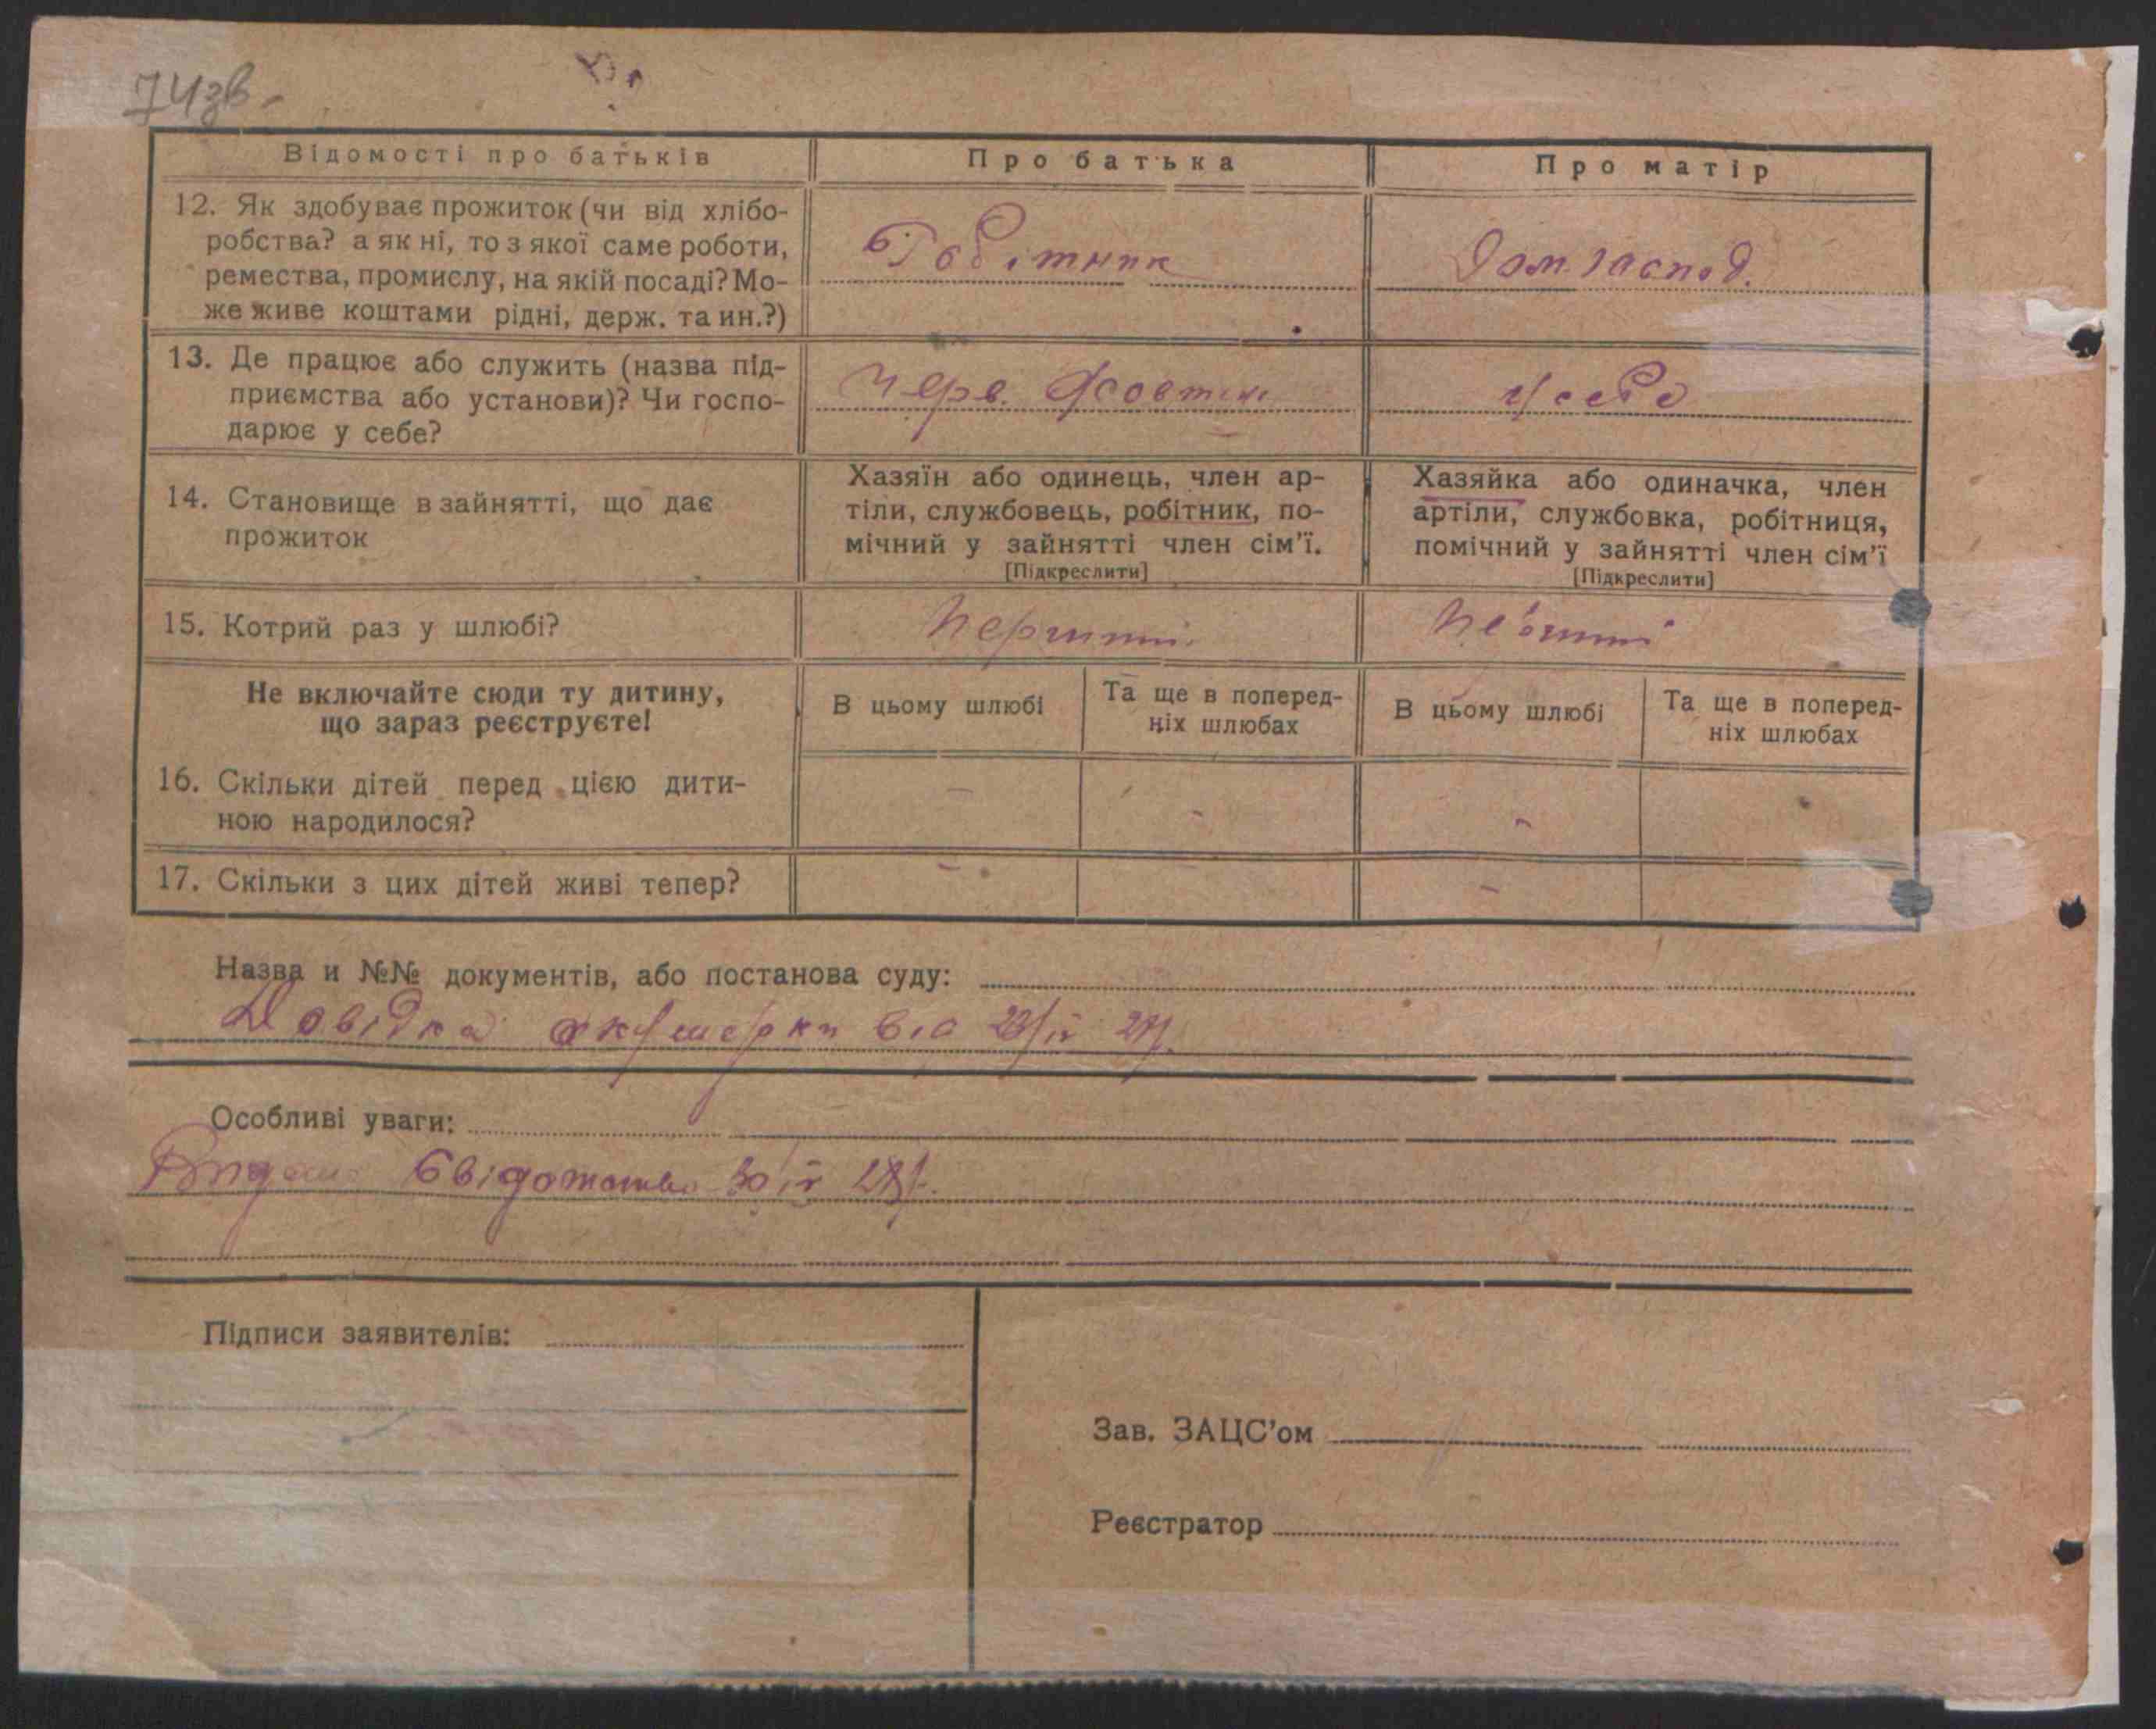 74зв.
Відомості про батьків
Про батька
Про матір
12. Як здобуває прожиток (чи від хлібо-
робства? а як ні, то з якої саме роботи,
ремества, промислу, на якій посаді? Мо-
же живе коштами рідні, держ. та ин.?)
Робітник
Дом. господ.
13. Де працює або служить (назва під-
приємства або установи)? Чи госпо-
дарює у себе?
Черв. Жовтня
У себе
14. Становище в зайнятті, що дає
прожиток
Хазяїн або одинець, член ар-
тіли, службовець, робітник, по-
мічний у зайнятті член сім'ї.
[Підкреслити]
Хазяйка або одиначка, член
артіли, службовка, робітниця,
помічний у зайнятті член сім'ї
[Підкреслити]
15. Котрий раз у шлюбі?
Перший
Перший
Не включайте сюди ту дитину,
що зараз реєструєте!
В цьому шлюбі
Та ще в поперед-
ніх шлюбах
В цьому шлюбі
Та ще в поперед-
ніх шлюбах
16. Скільки дітей перед цією дити-
ною народилося?
- - -
17. Скільки з цих дітей живі тепер?
- - -
Назва и №№ документів, або постанова суду:
Довідка акушерки від
Особливі уваги:
Видано Свідоцтво
Підписи заявителів:
Зав. ЗАЦС'ом
Реєстратор